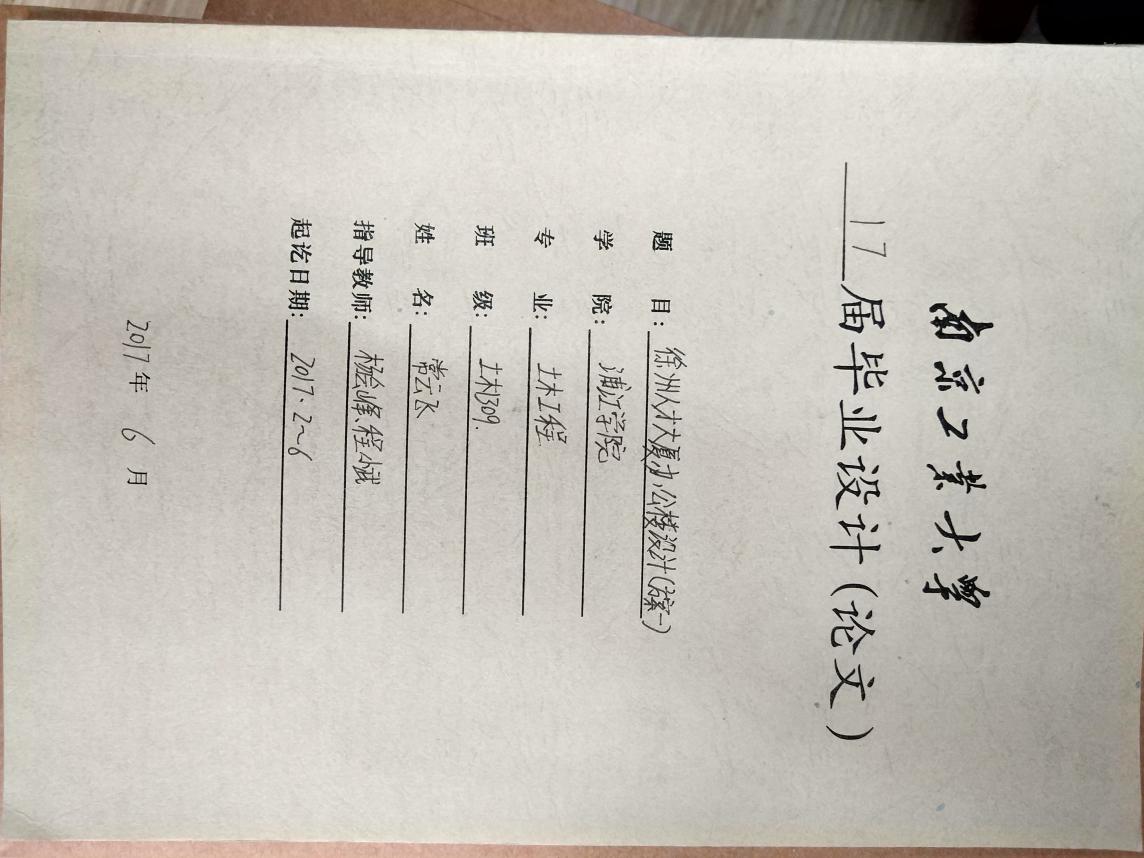 南京工业大学
17届毕业设计(论文)
题 目: 徐州人才大厦办公楼设计(方案一)
学 院: 浦江学院
专 业: 土木工程
班 级: 土木1309.
姓 名: 常云飞
指导教师: 杨会峰 程小武
起讫日期: 2017.2~6
2017年 6 月